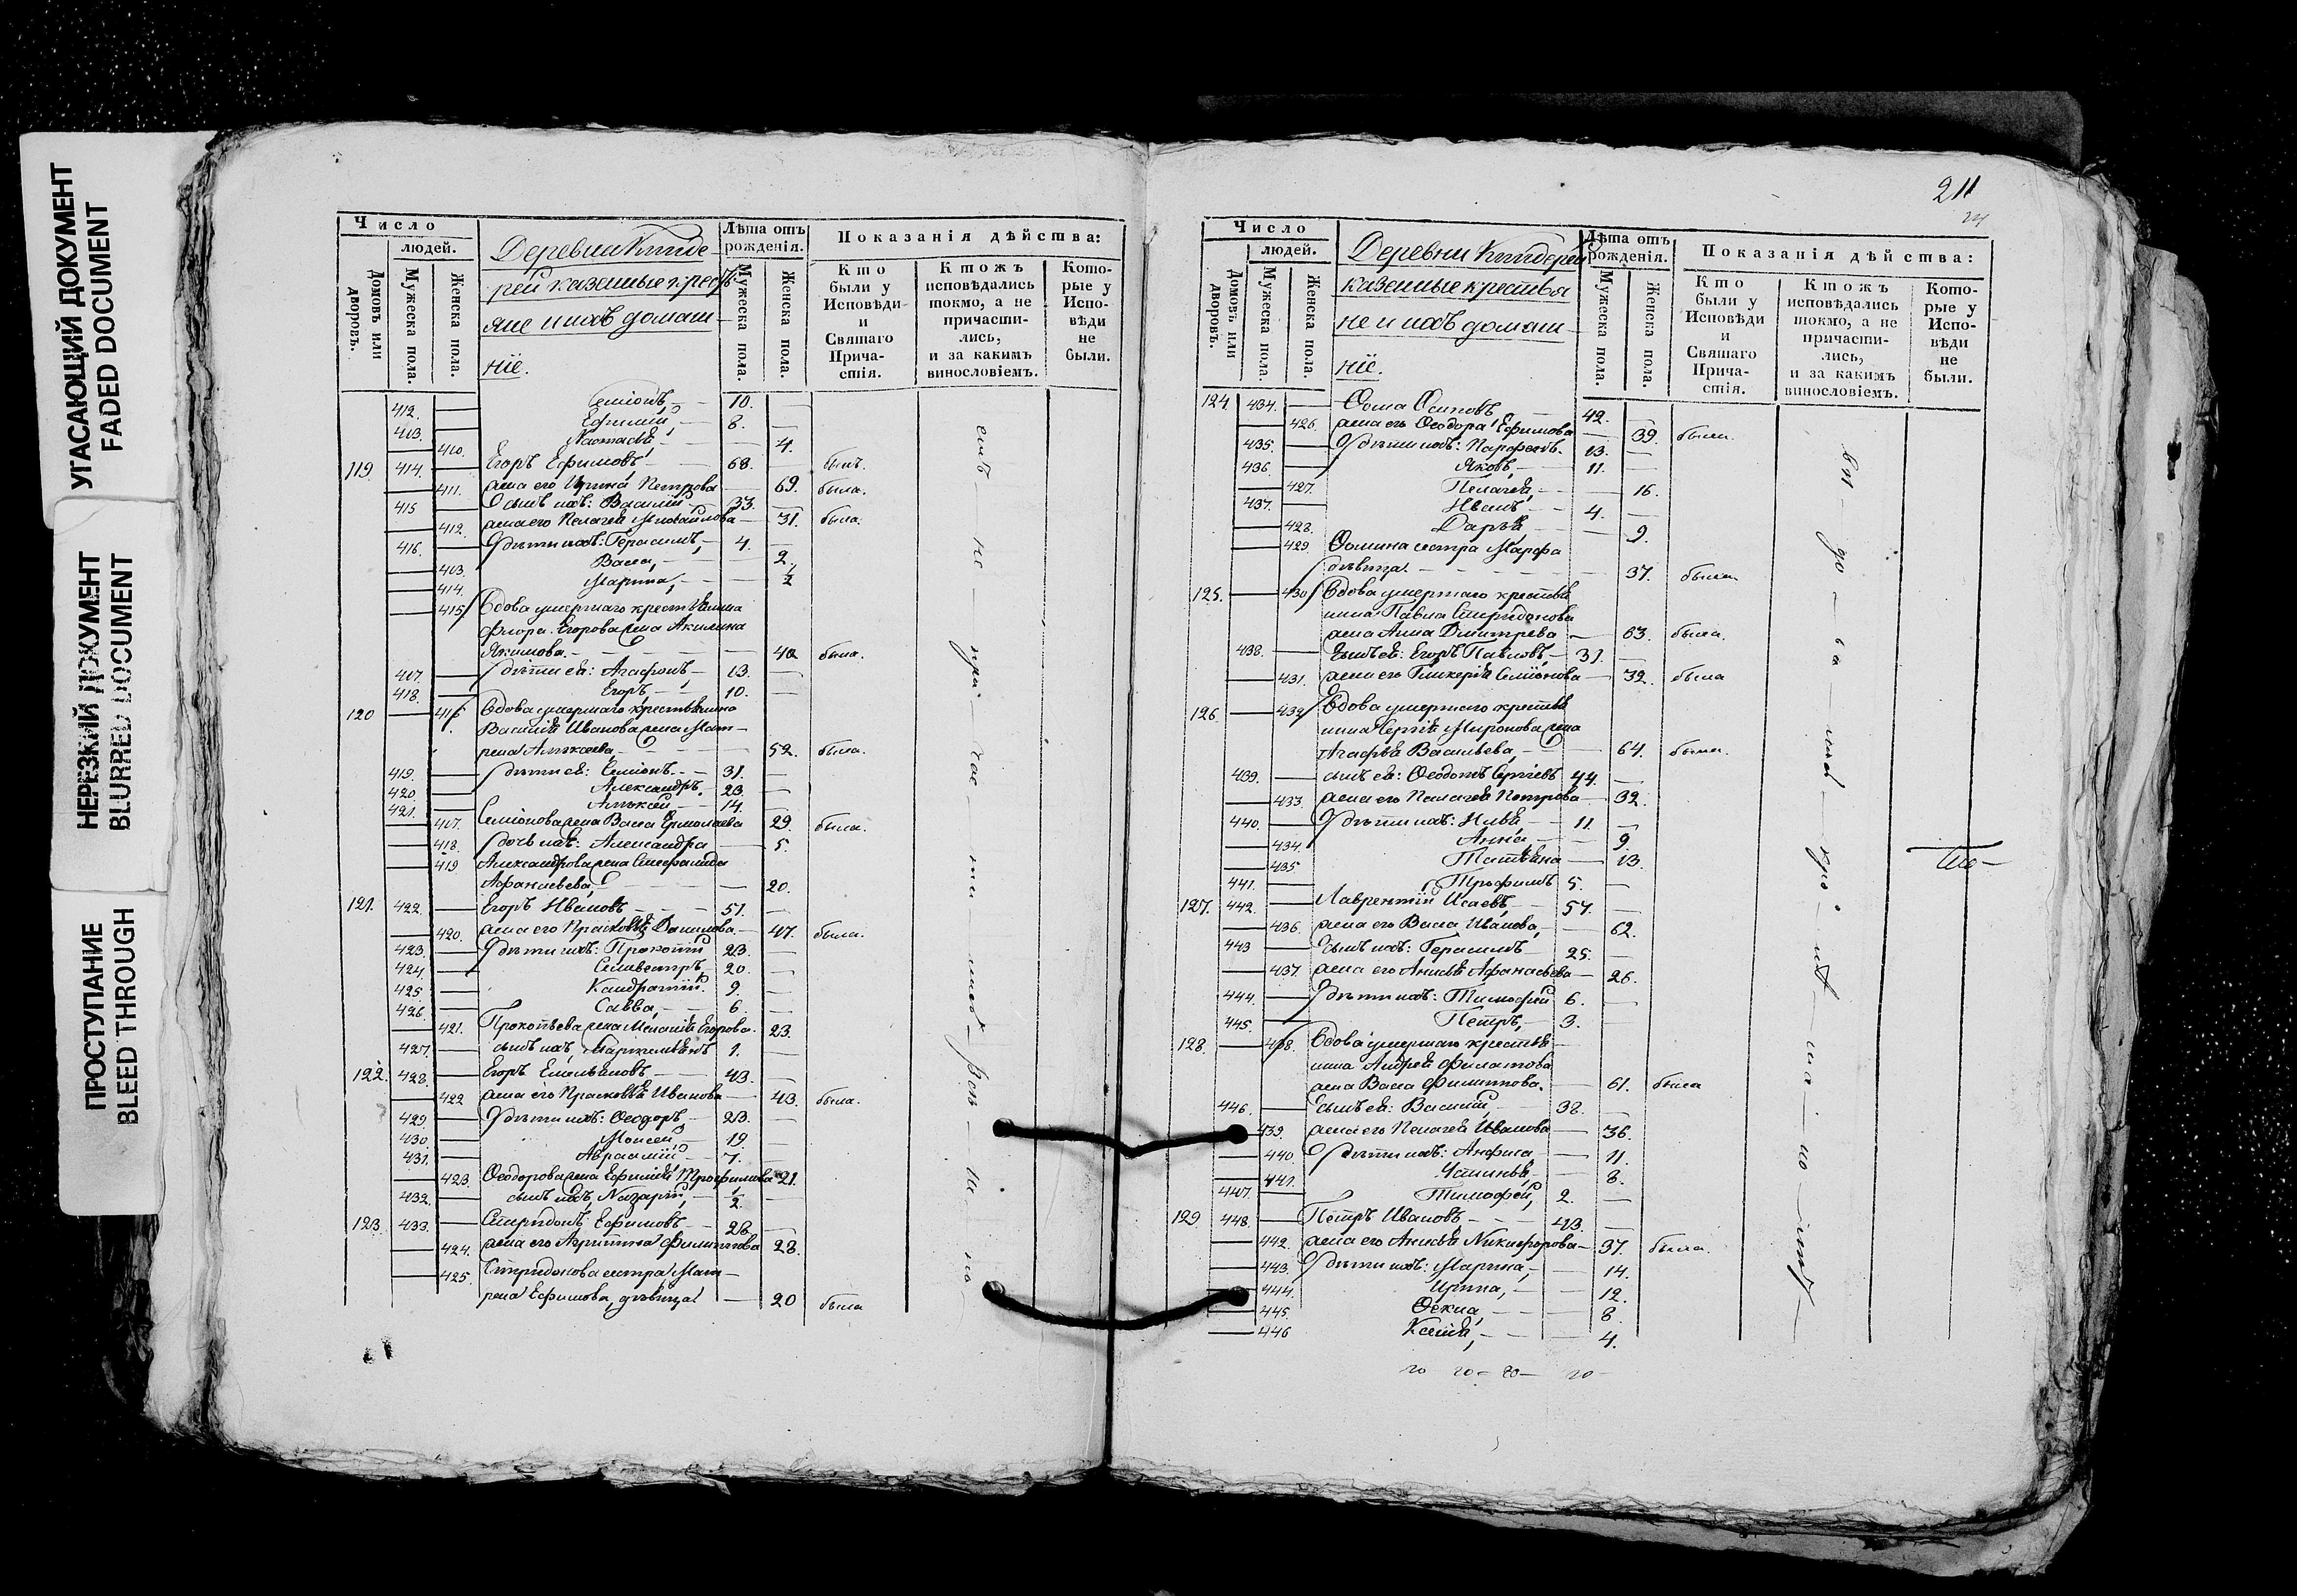 УГАСАЮЩИЙ ДОКУМЕНТ
FADED DOCUMENT
НЕРЕЗКИЙ ДОКУМЕНТ
BLURRED DOCUMENT
ПРОСТУПАНИЕ
BLEED THROUGH
Число
людей.
Домовъ или дворовъ.
Мужеска пола.
Женска пола.
Деревни Киндерей казенные крестьяне и ихъ домашніе.
Лѣта отъ рожденія.
Мужеска пола.
Женска пола.
Показанія дѣйства:
Кто были у Исповѣди и Святаго Причастія.
Ктожъ исповѣдались токмо, а не причастились, и за какимъ винословіемъ.
Которые у Исповѣди не были.
412. Семіонъ, 10.
413. Ефимій, 8.
410. Настасья 4.
119. 414. Егоръ Ефимовъ 68. былъ.
411. жена его Ирина Петрова 69. была.
415 Сынъ ихъ: Василій 33.
412. жена его Пелагея Михайлова 31. была.
416. дѣти ихъ: Герасимъ, 4.
413. Васса, 2.
414. Марина,
415 Вдова умершаго крестьянина
Флора Егорова жена Акилина
Якимова. 42 была.
417. дѣти ея: Агафонъ, 13.
418. Егоръ 10.
120 416 Вдова умершаго крестьянина
Василія Иванова жена Мат-
рена Алексеева 52. была.
419. дѣти ея: Семіонъ 31.
420. Александръ. 23.
421. Алексей 14.
417. Семіонова жена Васса Ермолаева 29. была.
418. дочь ихъ: Александра 5.
419 Александрова жена Степанида
Афанасьева, 20.
121. 422. Егоръ Ивановъ 51.
420. жена его Прасковья Данилова 47. была.
423. дѣти ихъ: Прокопій 23.
424. Селивестръ, 20.
425. Кандратій. 9.
426. Савва, 6.
421. Прокопьева жена Меланія Егорова. 23.
427. сынъ ихъ, Маркелианъ 1.
122. 428. Егоръ Емельяновъ 43.
422 жена его Прасковья Иванова 43. была.
429. дѣти ихъ: Ѳеодоръ, 23.
430 Моисей, 19
431. Авраамій 7.
423. Ѳеодорова жена Ефимія Трофимова 21.
432. сынъ ихъ, Назарій, 2.
123. 433. Спиридонъ Ефимовъ 28.
424. жена его Агрипина Филиппова 28.
425. Спиридонова сестра Мат-
рена Ефимова, дѣвица 20 была
211
Число
людей.
Домовъ или дворовъ.
Мужеска пола.
Женска пола.
Деревни Киндерей
казенные крестья
не и ихъ домаш-
ніе.
Лѣта отъ рожденія.
Мужеска пола.
Женска пола.
Показанія дѣйства:
Кто были у Исповѣди и Святаго Причастія.
Ктожъ исповѣдались токмо, а не причастились, и за какимъ винословіемъ.
Которые у Исповѣди не были.
124. 434. Ѳома Осиповъ 42.
426. жена его Ѳеодора Ефимова 39. была.
435. дѣти ихъ: Парфенъ. 13.
436. Яковъ, 11.
427. Пелагея, 16.
437. Иванъ 4.
428. Дарья 9.
429 Ѳомина сестра Марфа
дѣвица. 37. была
125. 430 Вдова умершаго крестья
нина Павла Спиридонова
жена Анна Дмитрева 63. была.
438. Сынъ ея: Егоръ Павловъ, 31.
431. жена его Гликерія Семіонова 32. была
126. 432 Вдова умершаго крестья
нина Сергія Миронова жена
Агафья Васильева, 64. была.
439. сынъ ея: Ѳеодотъ Сергіевъ 44.
433. жена его Пелагея Петрова 32.
440. дѣти ихъ: Илья 11.
434. Анна 9.
435 Татьяна 13.
441. Трофимъ 5.
127. 442. Лаврентій Исаевъ 57.
436. жена его Васса Иванова, 62.
443 Сынъ ихъ: Герасимъ 25.
437. жена его Анисья Афанасьева 26.
444. дѣти ихъ: Тимофей 6.
445. Петръ, 3.
128. 438. Вдова умершаго крестья
нина Андрея Филатова
жена Васса Филиппова. 61. была
446. Сынъ ея: Василій, 38.
439. жена его Пелагея Иванова 36.
440 дѣти ихъ: Анфиса 11.
441. Устинья, 8.
447. Тимофей, 2.
129 448. Петръ Ивановъ 43.
442. жена его Анисья Никифорова 37. была.
443. дѣти ихъ: Марина, 14.
444. Ирина, 12.
445. Ѳекла, 8.
446 Ксенія, 4.